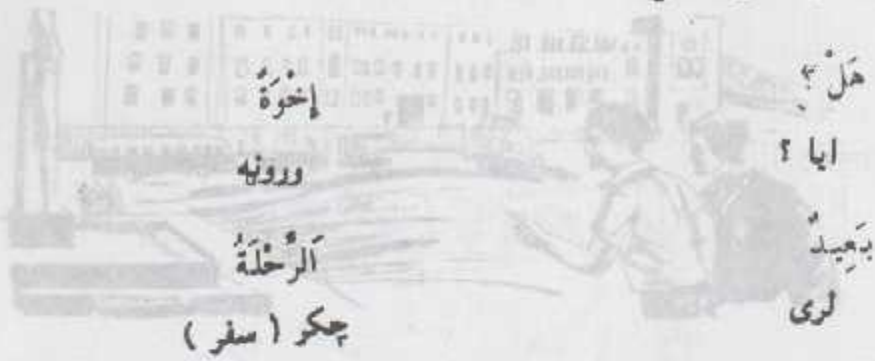 هَلْ ؟
ايا ؟
بَعِيدٌ
لرى
إِخْوَةٌ
ورونه
اَلرِّحْلَةُ
چکر ( سفر )